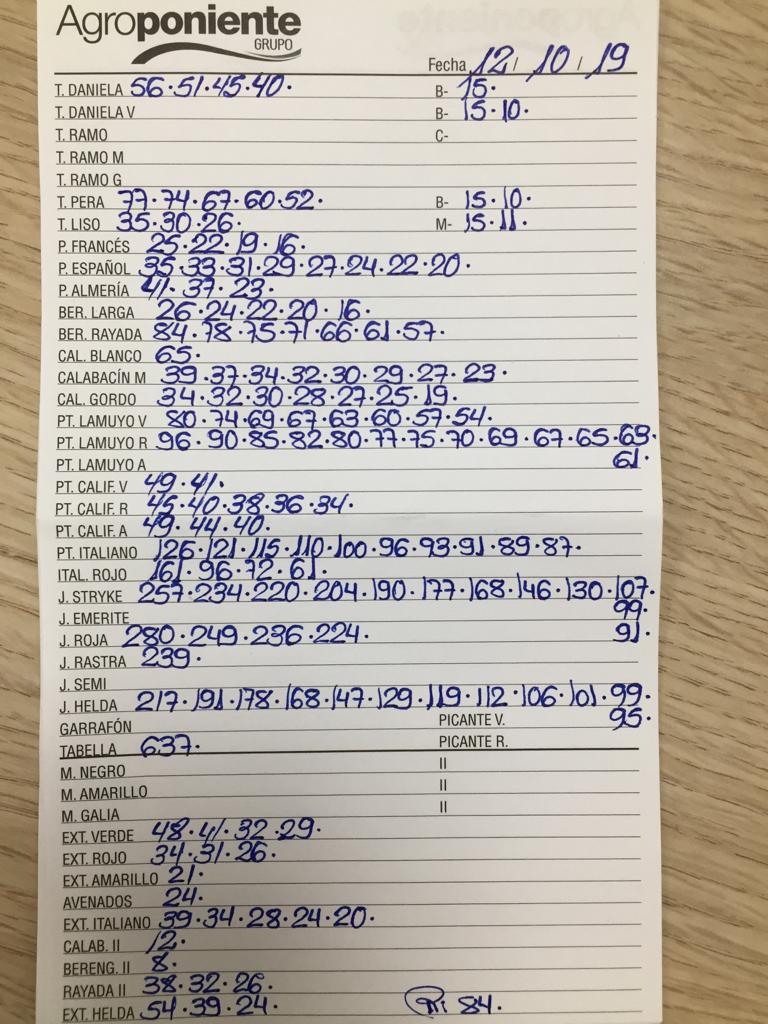 Agroponiente
GRUPO
Fecha 12 / 10 / 19
T. DANIELA 56·51·45·40· B- 15·
T. DANIELA V B- 15·10·
T. RAMO C-
T. RAMO M
T. RAMO G
T. PERA 77·74·67·60·52· B- 15·10·
T. LISO 35·30·26· M- 15·11·
P. FRANCÉS 25·22·19·16·
P. ESPAÑOL 35·33·31·29·27·24·22·20·
P. ALMERÍA 41·37·23·
BER. LARGA 26·24·22·20·16·
BER. RAYADA 84·78·75·71·66·61·57·
CAL. BLANCO 65·
CALABACÍN M 39·37·34·32·30·29·27·23·
CAL. GORDO 34·32·30·28·27·25·19·
PT. LAMUYO V 80·74·69·67·63·60·57·54·
PT. LAMUYO R 96·90·85·82·80·77·75·70·69·67·65·63·
PT. LAMUYO A 61·
PT. CALIF. V 49·41·
PT. CALIF. R 45·40·38·36·34·
PT. CALIF. A 49·44·40·
PT. ITALIANO 126·121·115·110·100·96·93·91·89·87·
ITAL. ROJO 161·96·72·61·
J. STRYKE 257·234·220·204·190·177·168·146·130·107·
J. EMERITE 99·
J. ROJA 280·249·236·224· 91·
J. RASTRA 239·
J. SEMI
J. HELDA 217·191·178·168·147·129·119·112·106·101·99·
GARRAFÓN PICANTE V. 95·
TABELLA 637· PICANTE R.
M. NEGRO II
M. AMARILLO II
M. GALIA II
EXT. VERDE 48·41·32·29·
EXT. ROJO 34·31·26·
EXT. AMARILLO 21·
AVENADOS 24·
EXT. ITALIANO 39·34·28·24·20·
CALAB. II 12·
BERENG. II 8·
RAYADA II 38·32·26·
EXT. HELDA 54·39·24· 84·